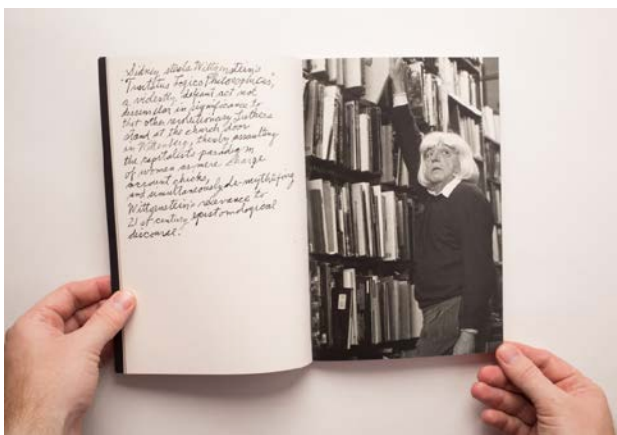 "Sidney steals Wittgenstein's
"Tractatus Logico Philosophicus,"
a violently defiant act not
dissimilar in significance to
that other revolutionary Luthers
stand at the church door
in Wittenberg, thereby assaulting
the capitalists paradigm
of women as mere charge
account chicks,
and simultaneously de-mythifying
Wittgenstein's relevance to
21st century epistomological
discourse."